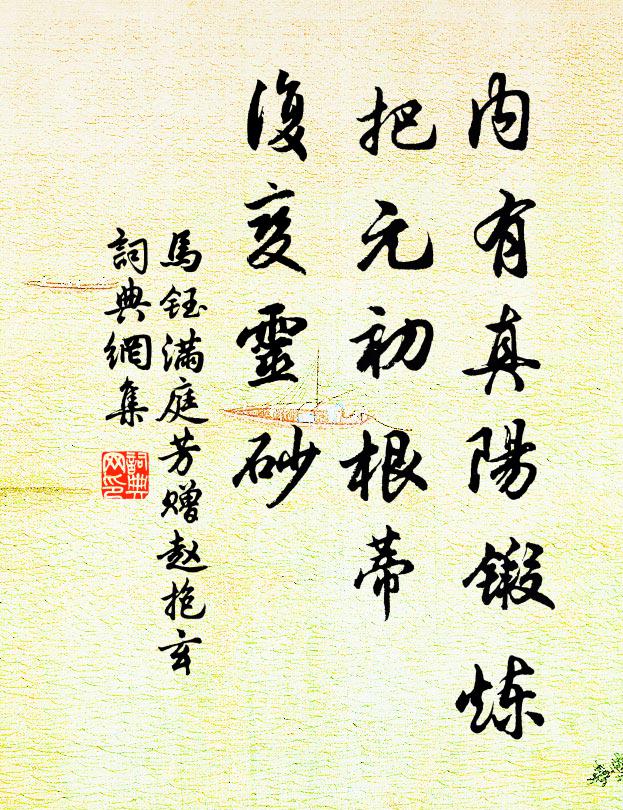 内有真陽鍛炼
把元初根蒂
復变靈砂
馬钰满庭芳赠赵抱玄
詞典網集
詞典网印